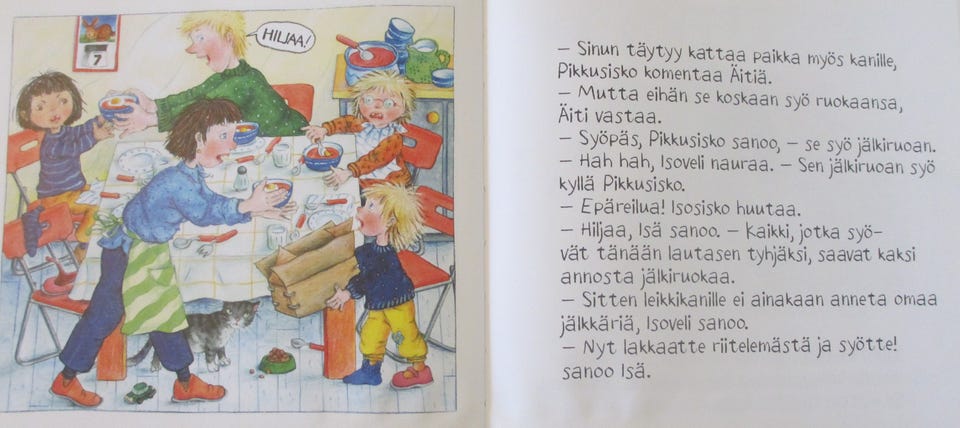 7
HILJAA!
– Sinun täytyy kattaa paikka myös kanille,
Pikkusisko komentaa Äitiä.
– Mutta eihän se koskaan syö ruokaansa,
Äiti vastaa.
– Syöpäs, Pikkusisko sanoo, – se syö jälkiruoan.
– Hah hah, Isoveli nauraa. – Sen jälkiruoan syö
kyllä Pikkusisko.
– Epäreilua! Isosisko huutaa.
– Hiljaa, Isä sanoo. – Kaikki, jotka syö-
vät tänään lautasen tyhjäksi, saavat kaksi
annosta jälkiruokaa.
– Sitten leikkikanille ei ainakaan anneta omaa
jälkkäriä, Isoveli sanoo.
– Nyt lakkaatte riitelemästä ja syötte!
sanoo Isä.